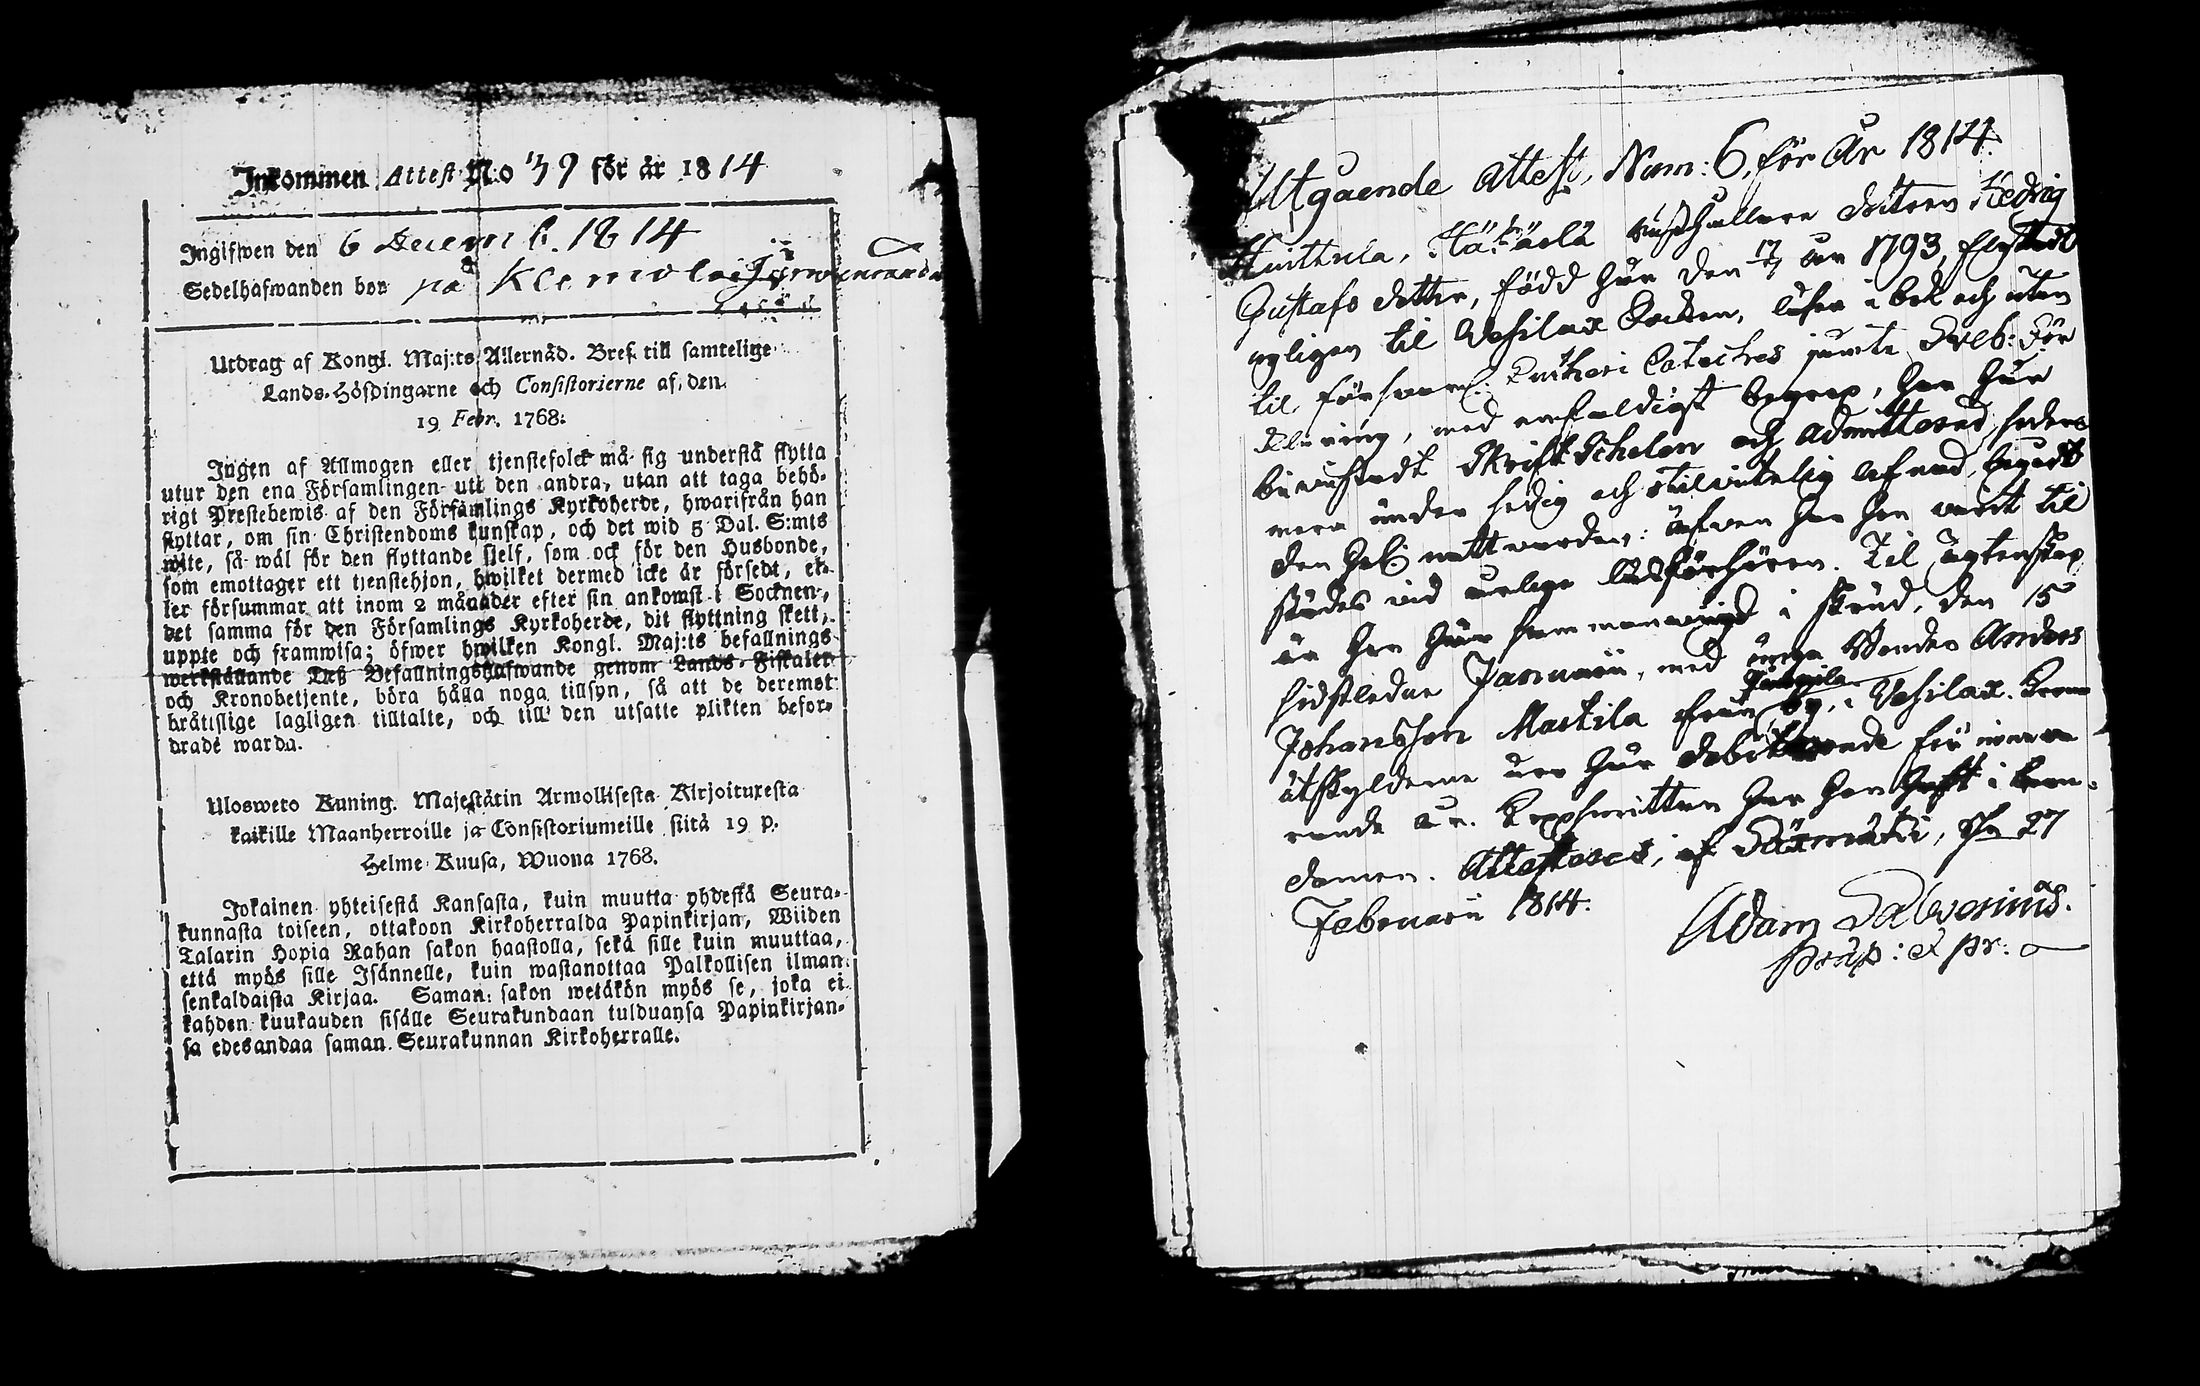 Inkommen Attest No 39 för år 1814
Ingifwen den 6 Decemb. 1814
Sedelhafwanden bor på Klemola i
Utdrag af Kongl. Maj:ts Allernåd. Bref till samtelige
Lands-Höfdingarne och Consistorierne af den
19 Febr. 1768.
Ingen af Allmogen eller tjenstefolck må sig understå flytta
utur den ena Församlingen uti den andra, utan att taga behö-
rigt Prestebewis af den Församlings Kyrkoherde, hwarifrån han
flyttar, om sin Christendoms kunskap, och det wid 5 Dal. S:mts
wite, så wäl för den flyttande sjelf, som ock för den Husbonde,
som emottager ett tjenstehjon, hwilket dermed icke är försedt, el-
ler försummar att inom 2 månader efter sin ankomst i Socknen,
det samma för den Församlings Kyrkoherde, dit flyttning skett,
uppte och framwisa; öfwer hwilken Kongl. Maj:ts befallnings
werkställande Deß Befallningshafwande genom Lands-Fiskaler
och Kronobetjente, böra hålla noga tillsyn, så att de deremot
bråtislige lagligen tilltalte, och till den utsatte plikten befor-
drade warda.
Ulosweto Kuning. Majestätin Armollisesta Kirjoituxesta
kaikille Maanherroille ja Consistoriumeille siitä 19 p.
Helme Kuusa, Wuona 1768.
Jokainen yhteisestä Kansasta, kuin muutta yhdestä Seura-
kunnasta toiseen, ottakoon Kirkoherralda Papinkirjan, Wiiden
Talarin Hopia Rahan sakon haastolla, sekä sille kuin muuttaa,
että myös sille Isännelle, kuin wastanottaa Palkollisen ilman
senkaldaista Kirjaa. Saman sakon wetäkön myös se, joka ei
kahden kuukauden sisälle Seurakundaan tulduansa Papinkirjan-
sa edesandaa saman Seurakunnan Kirkoherralle.
Utgaende Attest, Num: 6, för År 1814.
Husthållare dottren Hedvig
Gustafs dotter, född har den 17/7 år 1793, flyttat
ageligen til Vesilax Socken, läser i bok och utan
til försvarl: Lutheri Cateches jämte Sveb: För
klaring, med enfaldigt begrep, har här
bevistadt Skrift Scholen och admitterad, sedere
mera under sedig och otilvitelig lefnad, begådt
den Hel: nattvarden: äfven har hon varit til
städes vid årlige läsförhören. Til Ägtenskap
är hon här sammanvigd i stånd, den 15
sidstledne Januarii, med unga Bonden Anders
Johansson Mattila från by, i Vesilax. Krono
utskylderna äro här debiterade för innewa
rande år. Koppsmittan har hon haft i barn-
domen. Attesteras, af Säxmäki, d. 27
Februarii 1814.
Adam Salvenius.
Præp: & pr: